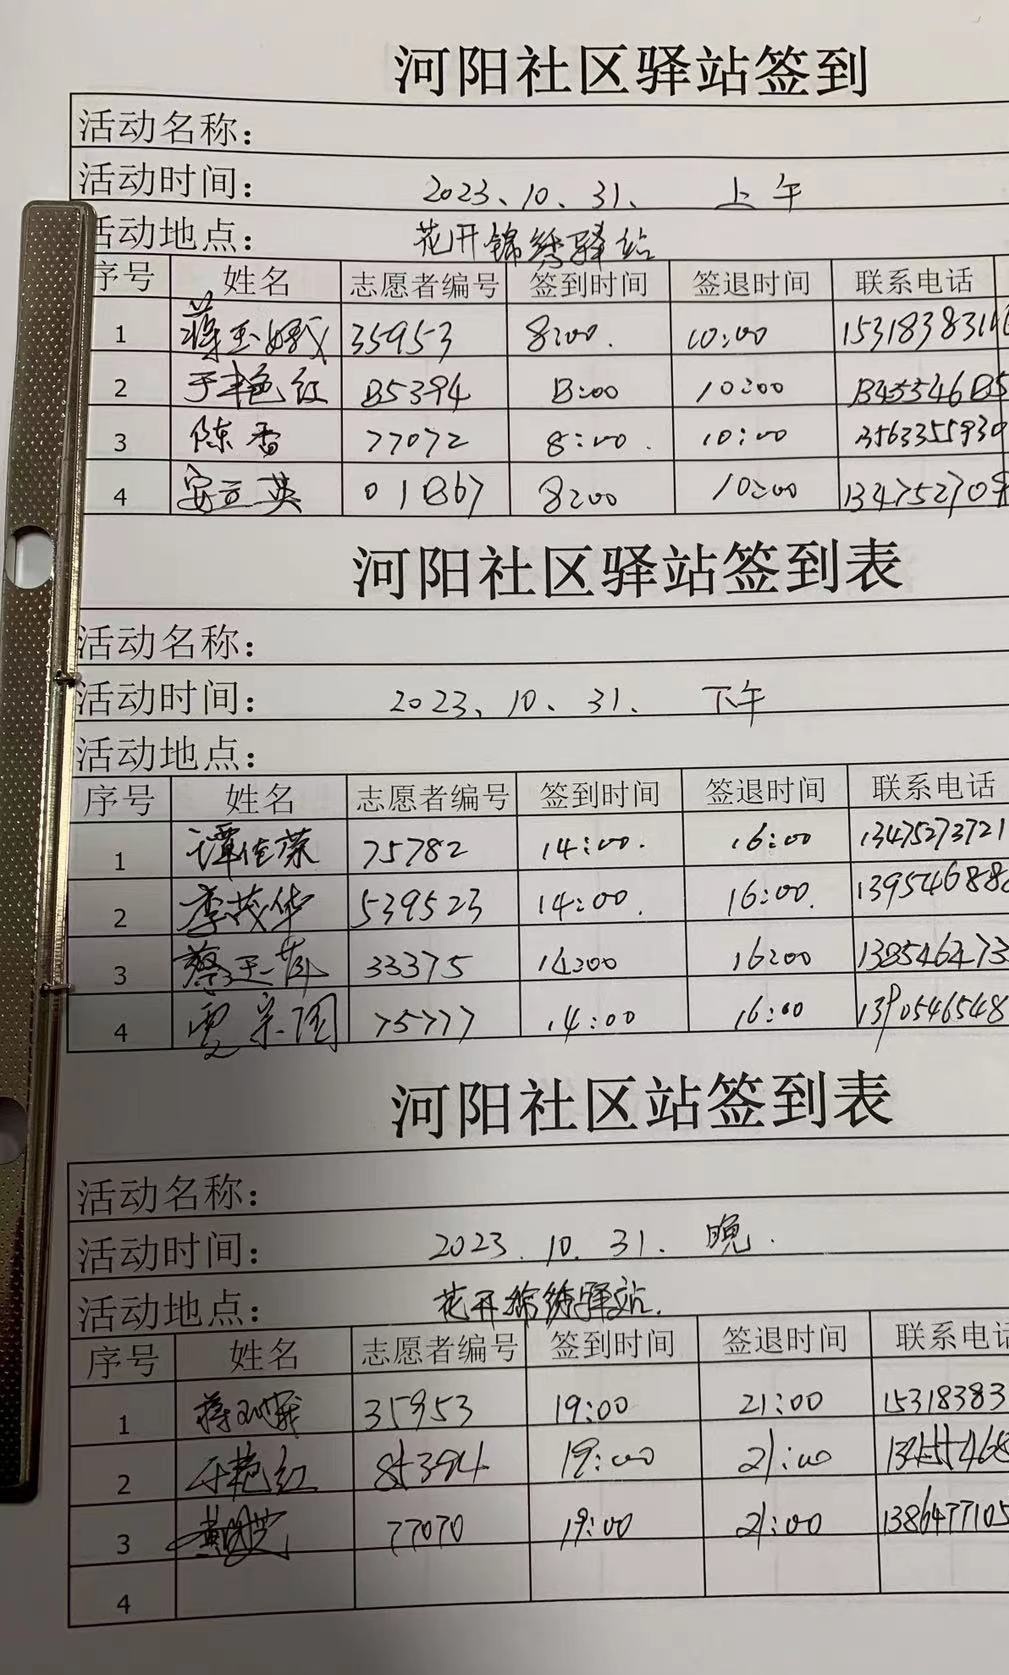 河阳社区驿站签到
活动名称：
活动时间： 2023、10、31、 上午
活动地点： 花开锦绣驿站
序号 姓名 志愿者编号 签到时间 签退时间 联系电话
1 蒋玉娥 35953 8:00. 10:00 1531838316
2 于艳红 85394 8:00 10:00
3 陈香 77072 8:00. 10:00 3563355930
4 安立英 01867 8:00 10:00 134752709
河阳社区驿站签到表
活动名称：
活动时间： 2023、10、31、 下午
活动地点：
序号 姓名 志愿者编号 签到时间 签退时间 联系电话
1 谭佳荣 75782 14:00. 16:00 13475273721
2 李茂华 539523 14:00. 16:00. 139546886
3 蔡玉萍 33375 14:00 16:00 138546473
4 贾宗国 75777 14:00 16:00 1390546548
河阳社区站签到表
活动名称：
活动时间： 2023.10.31. 晚.
活动地点： 花开锦绣驿站.
序号 姓名 志愿者编号 签到时间 签退时间 联系电话
1 蒋玉娥 35953 19:00 21:00 15318383
2 于艳红 85394 19:00 21:00
3 77070 19:00 21:00 1386477105
4